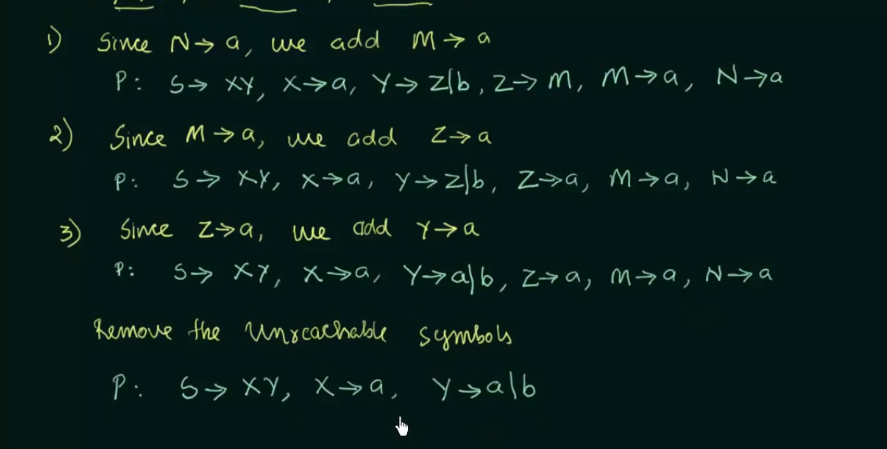 1) Since N → a, we add M → a
P: S → XY, X → a, Y → Z|b, Z → M, M → a, N → a
2) Since M → a, we add Z → a
P: S → XY, X → a, Y → Z|b, Z → a, M → a, N → a
3) Since Z → a, we add Y → a
P: S → XY, X → a, Y → a|b, Z → a, M → a, N → a
Remove the Unreachable symbols
P: S → XY, X → a, Y → a|b